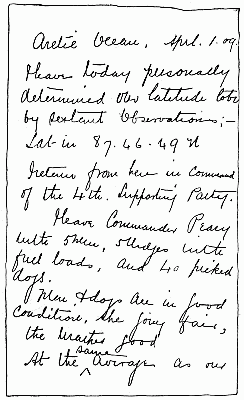 Arctic Ocean, Apl. 1. 09.
I have today personally
determined our latitude to be
by sextant Observations;-
Lat in 87.46.49 N
I return from here in Command
of the 4th. Supporting Party.
I leave Commander Peary
with 5 Men, 5 Sledges with
full loads, and 40 picked
dogs.
Men & dogs are in good
Condition. The going fair,
the weather good
same
At the Average as our